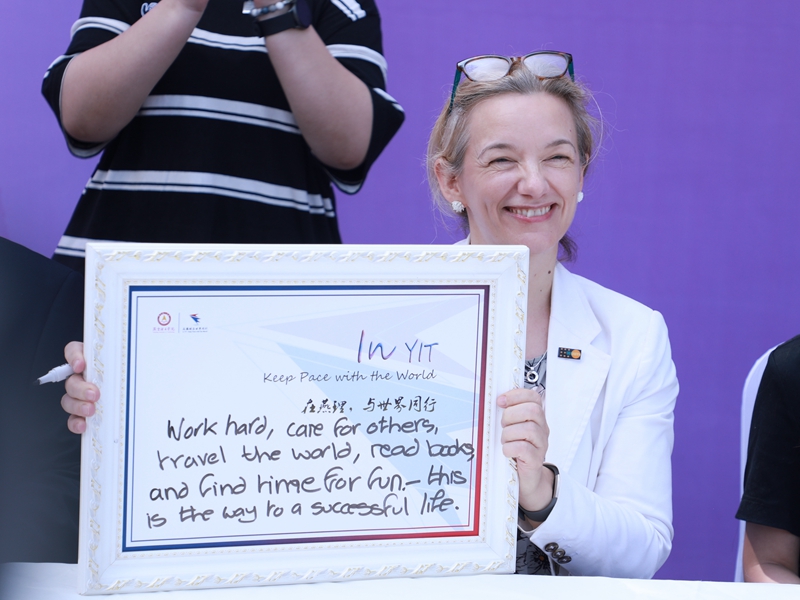 In YIT
Keep Pace with the World
在燕理，与世界同行
Work hard, care for others,
travel the world, read books,
and find time for fun. – this
is the way to a successful life.